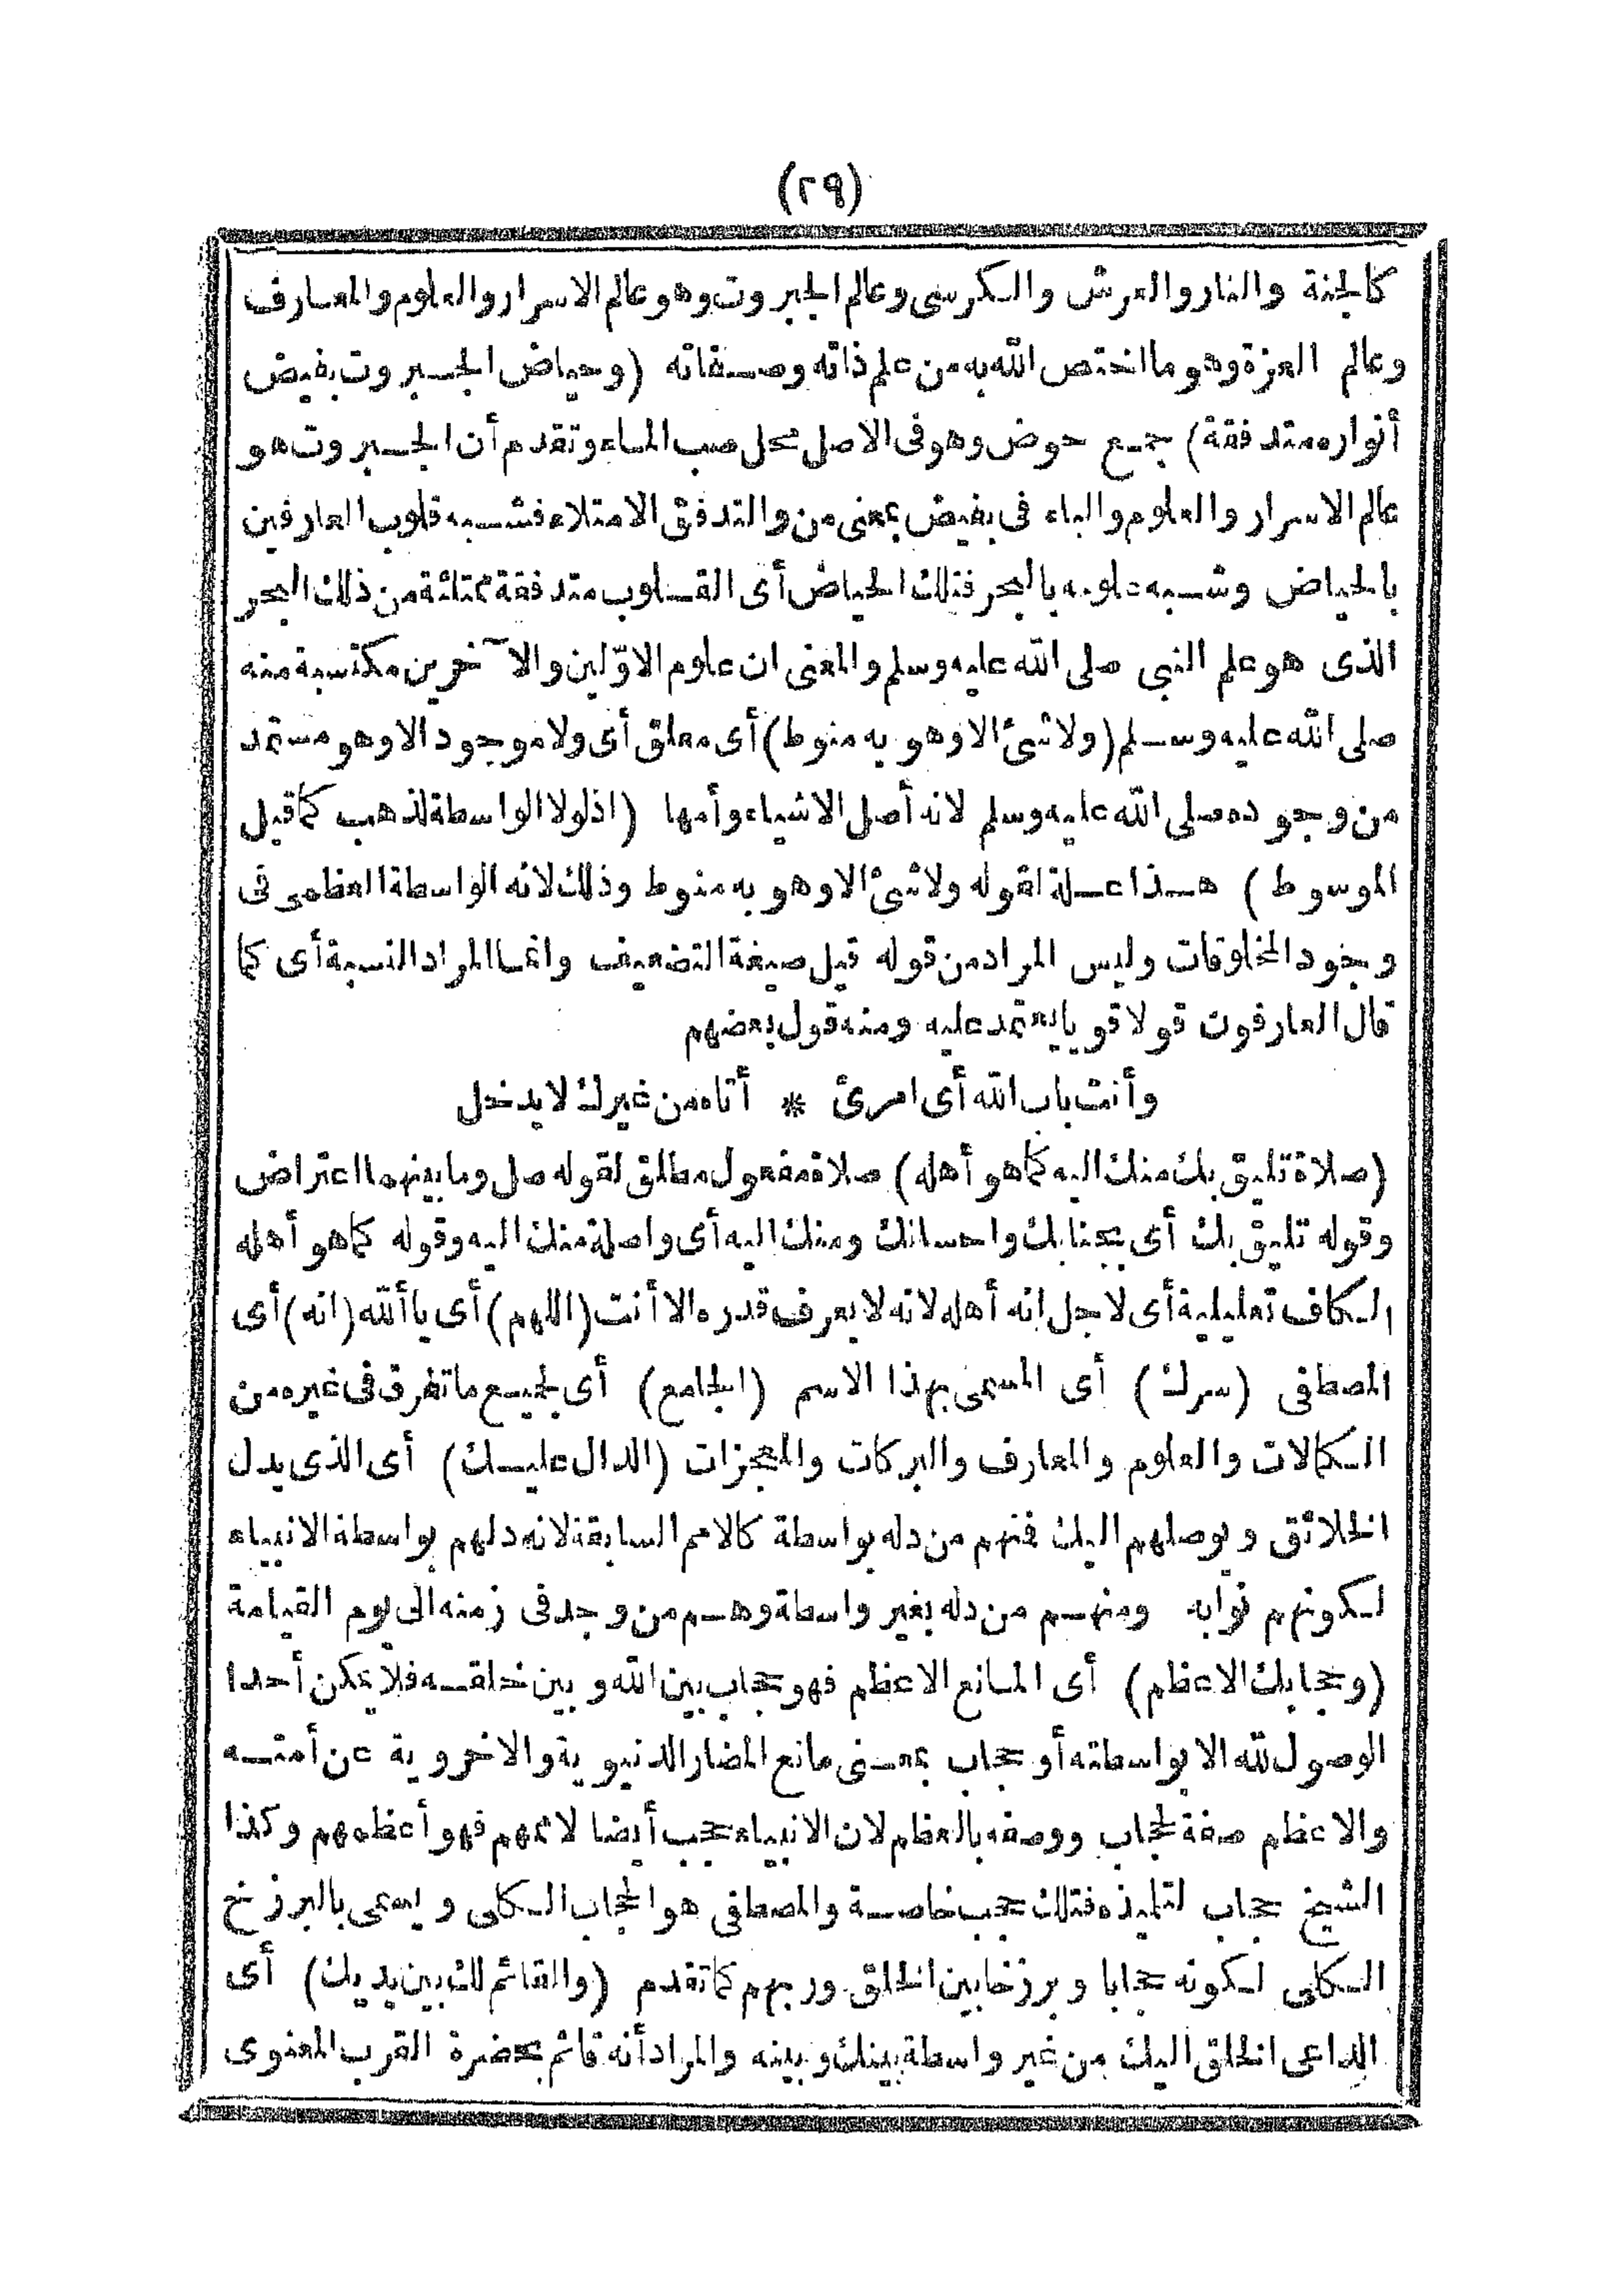 (٢٩)
كالجنة والنار والعرش والكرسى وعالم الجبروت وهو عالم الاسرار والعلوم والمعارف
وعالم العزة وهو ما اختص الله به من علم ذاته وصفاته (وحياض الجبروت بفيض
أنواره متدفقة) جمع حوض وهو فى الاصل محل صب الماء وتقدم أن الجبروت هو
عالم الاسرار والعلوم والباء فى بفيض بمعنى من والتدفق الامتلاء فشبه قلوب العارفين
بالحياض وشبه علومه بالبحر فتلك الحياض أى القلوب متدفقة ممتلئة من ذلك البحر
الذى هو علم النبى صلى الله عليه وسلم والمعنى ان علوم الاوّلين والآخرين مكتسبة منه
صلى الله عليه وسلم (ولا شئ الا وهو به منوط) أى معلق أى ولا موجود الا وهو مستمد
من وجوده صلى الله عليه وسلم لانه أصل الاشياء وأمها (اذ لولا الواسطة لذهب كما قيل
الموسوط) هذا علة لقوله ولا شئ الا وهو به منوط وذلك لانه الواسطة العظمى فى
وجود المخلوقات وليس المراد من قوله قيل صيغة التضعيف وانما المراد النسبة أى كما
قال العارفون قولا قويا يعتمد عليه ومنه قول بعضهم
وأنت باب الله أى امرئ * أتاه من غيرك لا يدخل
(صلاة تليق بك منك اليه كما هو أهله) صلاة مفعول مطلق لقوله صل وما بينهما اعتراض
وقوله تليق بك أى بجنابك واحسانك ومنك اليه أى واصلة منك اليه وقوله كما هو أهله
الكاف تعليلية أى لاجل انه أهله لانه لا يعرف قدره الا أنت (اللهم) أى يا ألله (انه) أى
المصطفى (سرك) أى المسمى بهذا الاسم (الجامع) أى لجميع ما تفرق فى غيره من
الكمالات والعلوم والمعارف والبركات والمعجزات (الدال عليك) أى الذى يدل
الخلائق ويوصلهم اليك فمنهم من دله بواسطة كالامم السابقة لانه دلهم بواسطة الانبياء
لكونهم نوابه ومنهم من دله بغير واسطة وهم من وجد فى زمنه الى يوم القيامة
(وحجابك الاعظم) أى المانع الاعظم فهو حجاب بين الله وبين خلقه فلا يمكن أحدا
الوصول لله الا بواسطته أو حجاب بمعنى مانع المضار الدنيوية والاخروية عن أمته
والاعظم صفة لحجاب ووصفه بالعظم لان الانبياء حجب أيضا لاممهم فهو أعظمهم وكذا
الشيخ حجاب لتلميذه فتلك حجب خاصة والمصطفى هو الحجاب الكلى ويسمى بالبرزخ
الكلى لكونه حجابا وبرزخا بين الخلق وربهم كما تقدم (والقائم لك بين يديك) أى
الداعى الخلق اليك من غير واسطة بينك وبينه والمراد أنه قائم بحضرة القرب المعنوى